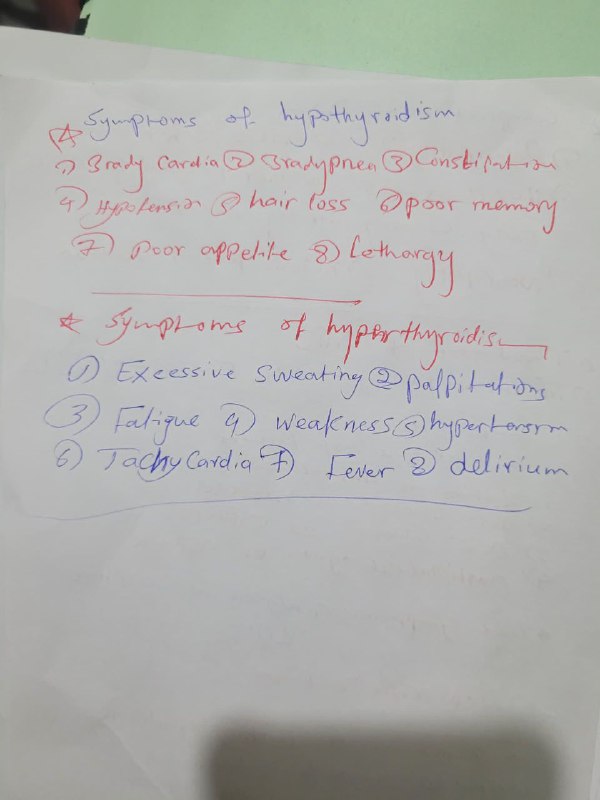 ☆ Symptoms of hypothyroidism
1) Brady Cardia ② Bradypnea ③ Constipation
4) Hypotension 5) hair loss 6) poor memory
7) Poor appetite 8) Lethargy
☆ Symptoms of hyperthyroidism
1) Excessive Sweating ② palpitations
3) Fatigue 4) weakness 5) hypertension
6) Tachy Cardia 7) Fever 8) delirium